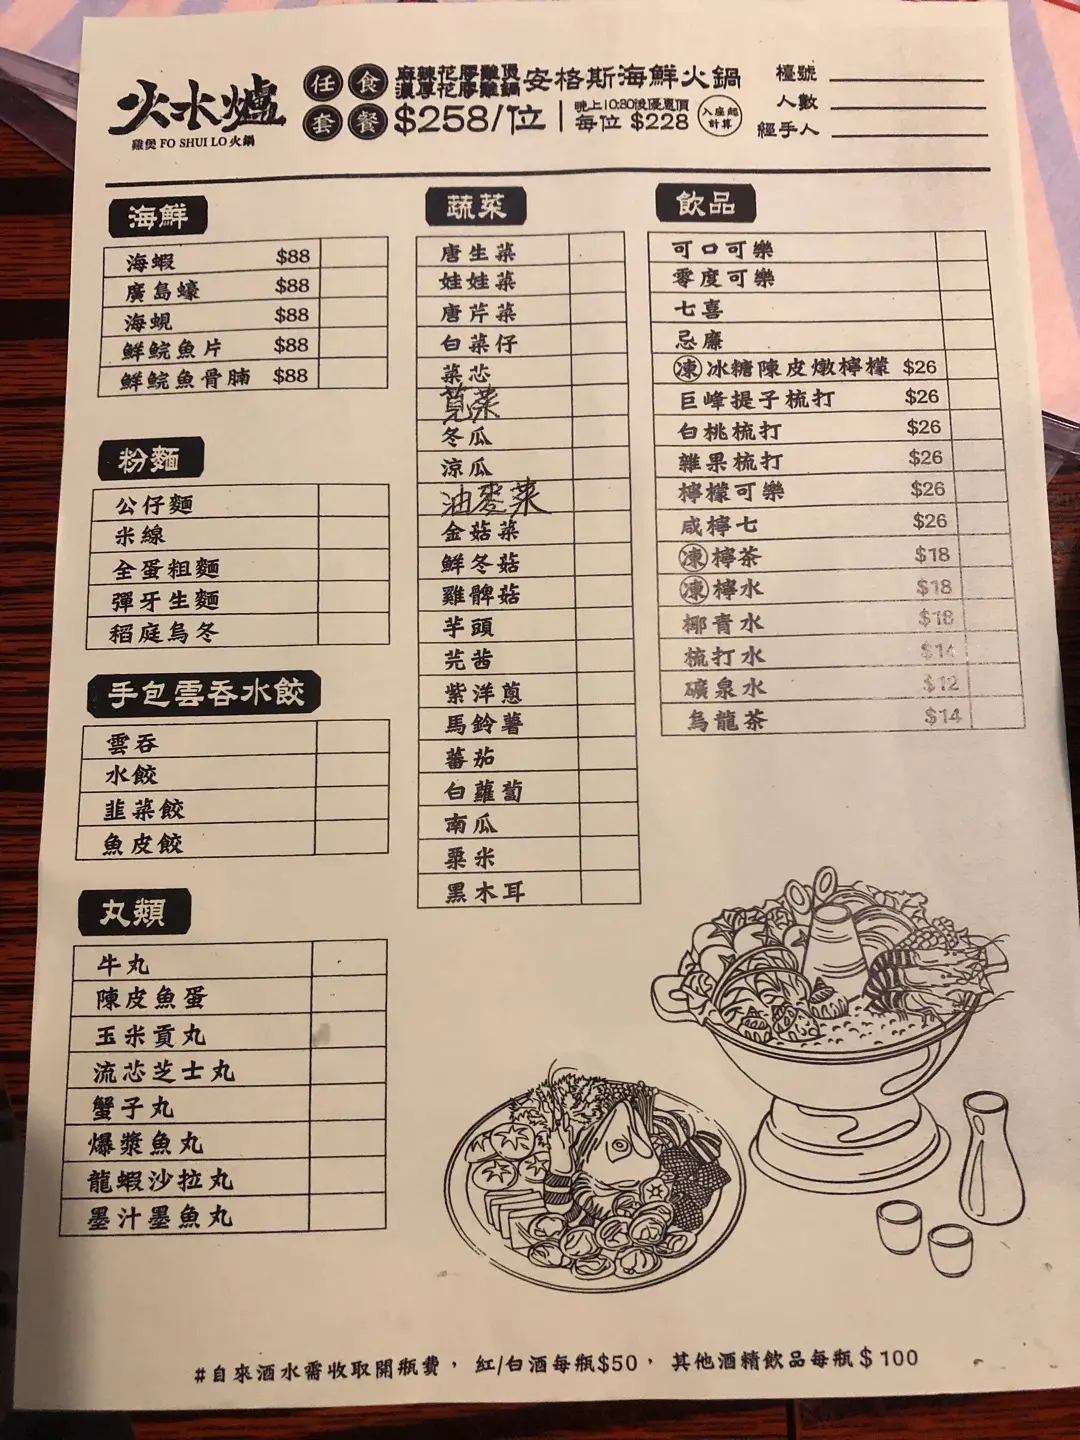 火水爐
雞煲 FO SHUI LO 火鍋
任食套餐
麻辣花膠雞煲
濃厚花膠雞鍋
安格斯海鮮火鍋
$258/位
晚上10:30後優惠價
每位 $228
入座起計算
檯號
人數
經手人
海鮮
海蝦 $88
廣島蠔 $88
海蜆 $88
鮮鯇魚片 $88
鮮鯇魚骨腩 $88
粉麵
公仔麵
米線
全蛋粗麵
彈牙生麵
稻庭烏冬
手包雲吞水餃
雲吞
水餃
韭菜餃
魚皮餃
丸類
牛丸
陳皮魚蛋
玉米貢丸
流芯芝士丸
蟹子丸
爆漿魚丸
龍蝦沙拉丸
墨汁墨魚丸
蔬菜
唐生菜
娃娃菜
唐芹菜
白菜仔
菜芯
莧菜
冬瓜
涼瓜
油麥菜
金菇菜
鮮冬菇
雞髀菇
芋頭
芫茜
紫洋蔥
馬鈴薯
蕃茄
白蘿蔔
南瓜
粟米
黑木耳
飲品
可口可樂
零度可樂
七喜
忌廉
凍冰糖陳皮燉檸檬 $26
巨峰提子梳打 $26
白桃梳打 $26
雜果梳打 $26
檸檬可樂 $26
咸檸七 $26
凍檸茶 $18
凍檸水 $18
椰青水 $18
梳打水 $14
礦泉水 $12
烏龍茶 $14
#自來酒水需收取開瓶費， 紅/白酒每瓶$50， 其他酒精飲品每瓶$100